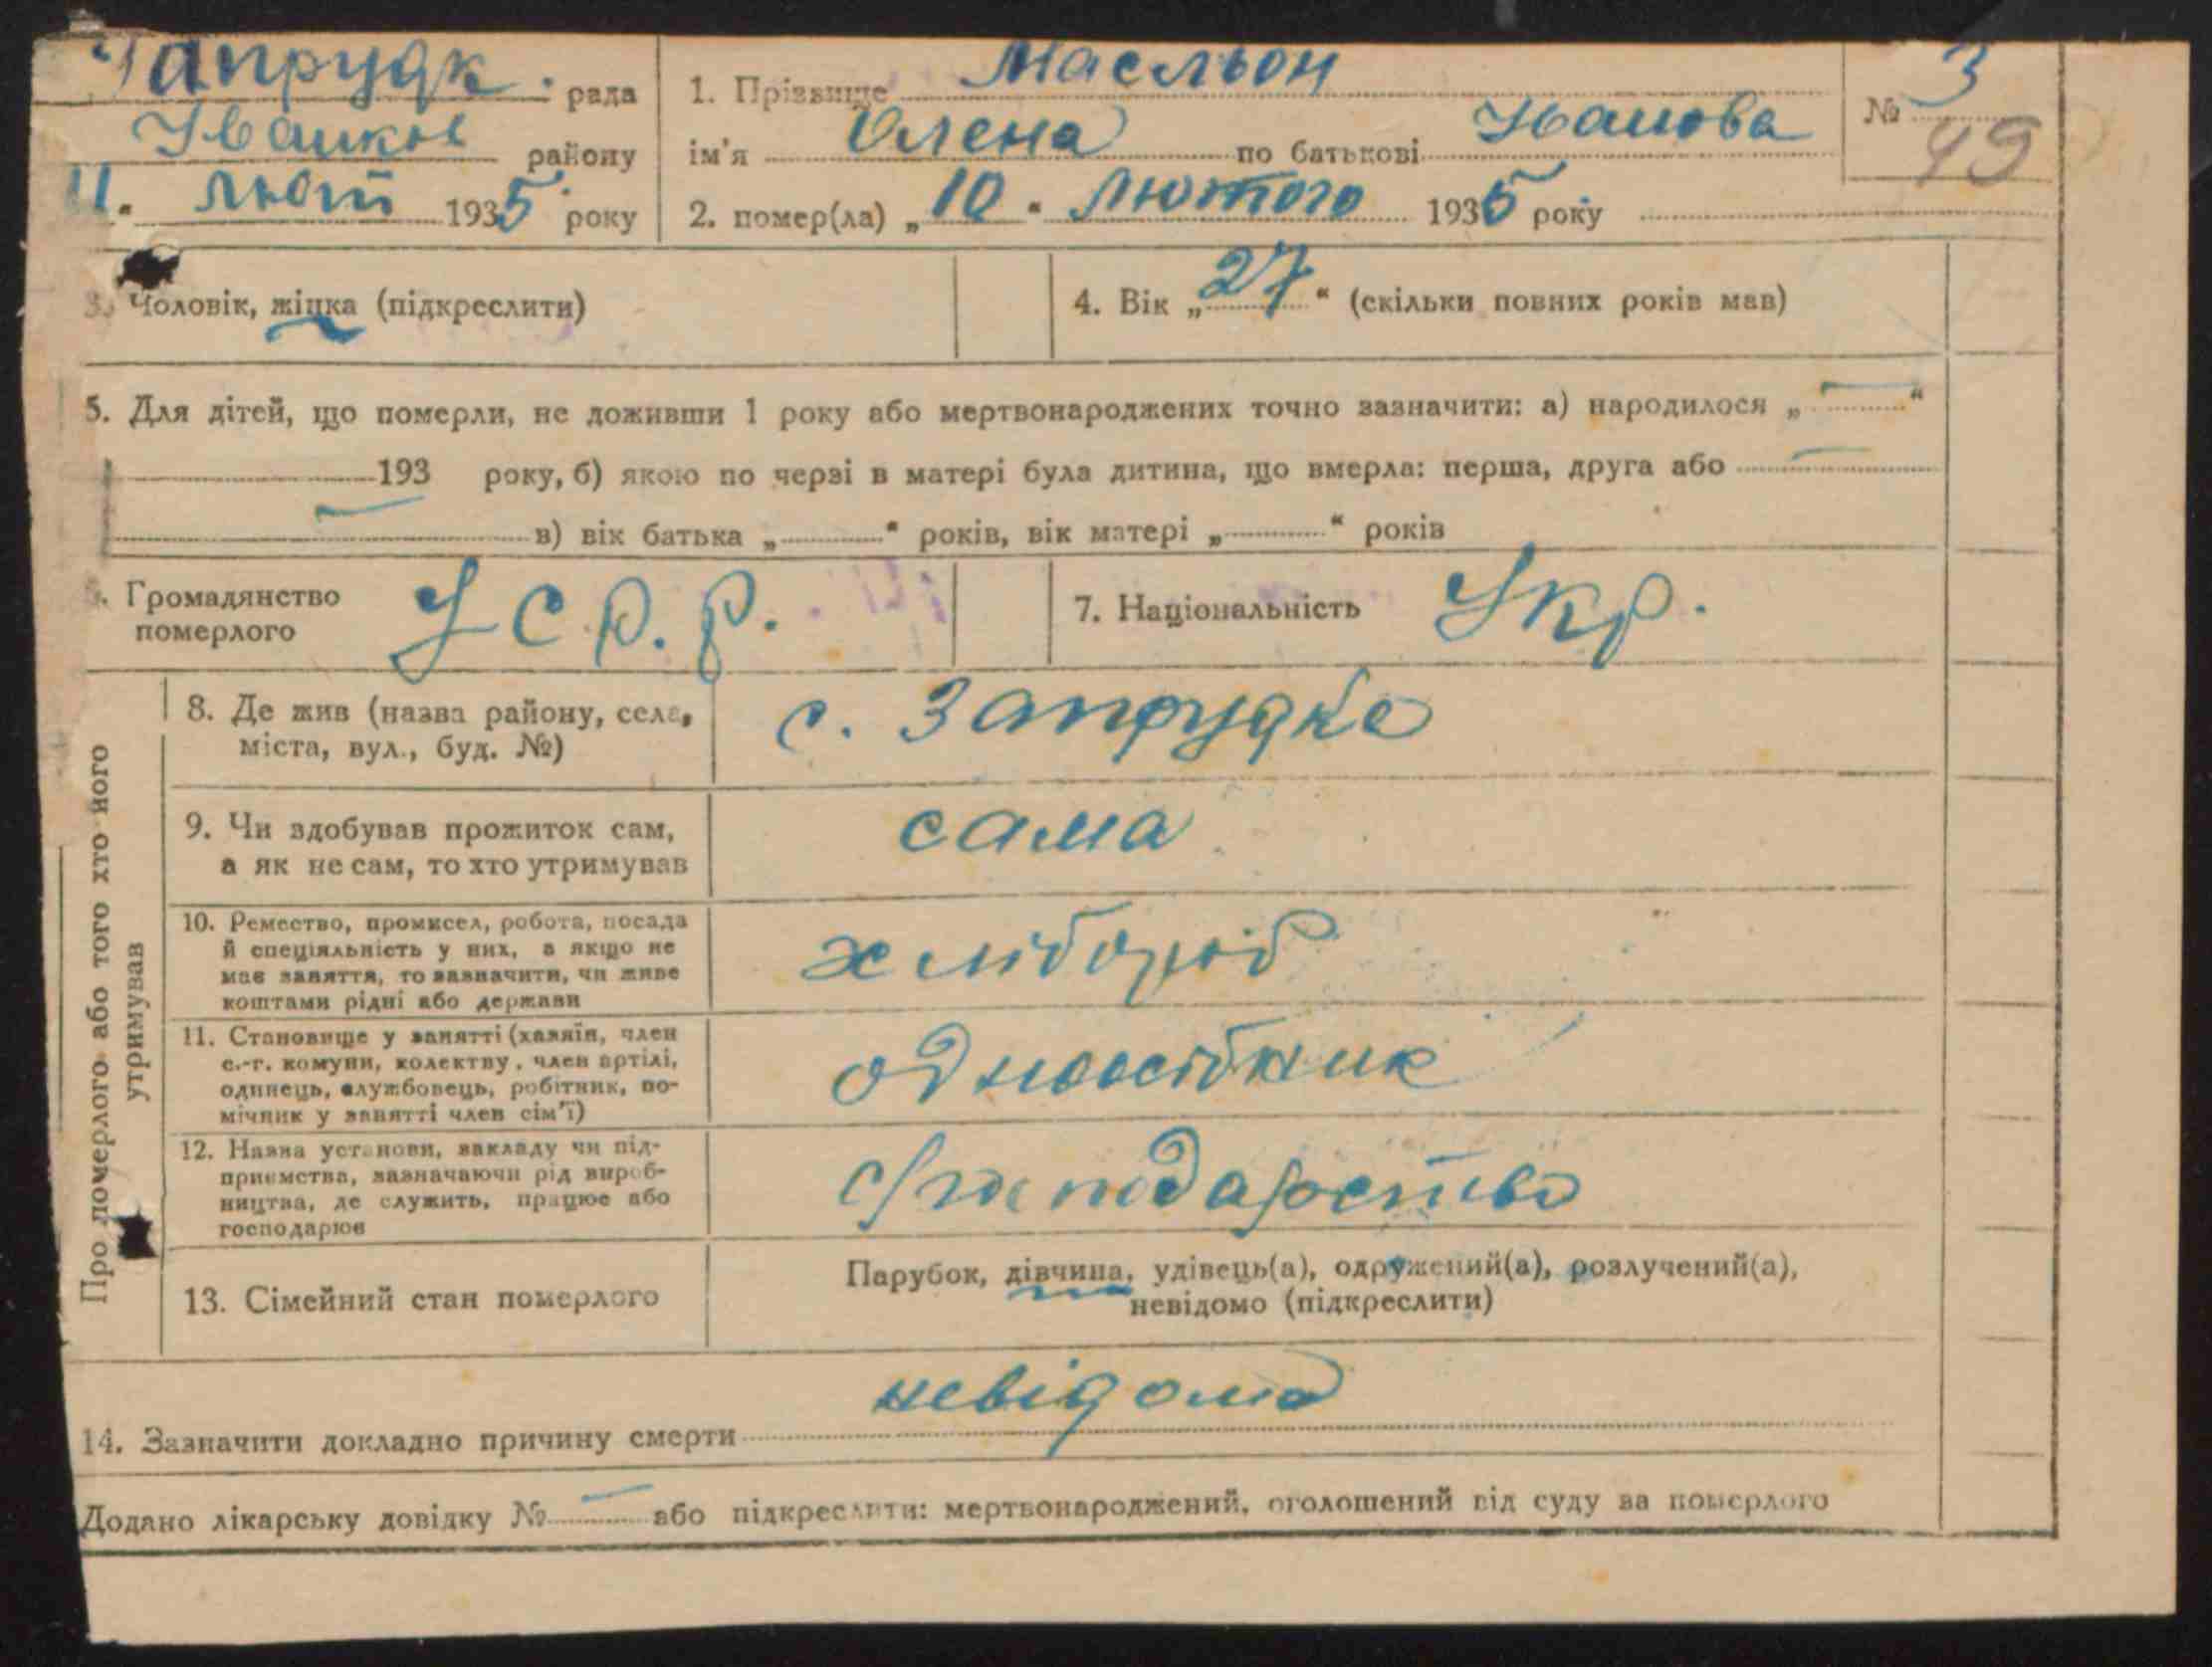 Запрудк. рада
Іванков району
11. лют 1935 року
1. Прізвище Масльон
ім'я Олена по батькові Іванова
2. помер(ла) „10" Лютого 1935 року
№ 3
49
3. Чоловік, жінка (підкреслити)
4. Вік „27" (скільки повних років мав)
5. Для дітей, що померли, не доживши 1 року або мертвонароджених точно зазначити: а) народилося „—"
193 року, б) якою по черзі в матері була дитина, що вмерла: перша, друга або —
— в) вік батька „ " років, вік матері „ " років
Громадянство
померлого
УСР.р.
7. Національність Укр.
Про померлого або того хто його
утримував
8. Де жив (назва району, села,
міста, вул., буд. №)
с. Запрудка
9. Чи здобував прожиток сам,
а як не сам, то хто утримував
сама
10. Ремество, промисел, робота, посада
й спеціяльність у них, а якщо не
має заняття, то зазначити, чи живе
коштами рідні або держави
хлібороб
11. Становище у занятті (хазяїн, член
с.-г. комуни, колектву, член артілі,
одинець, службовець, робітник, по-
мічник у занятті член сім'ї)
одноосібник
12. Назва установи, закладу чи під-
приємства, зазначаючи рід вироб-
ництва, де служить, працює або
господарює
с/господарство
13. Сімейний стан померлого
Парубок, дівчина, удівець(а), одружений(а), розлучений(а),
невідомо (підкреслити)
невідома
14. Зазначити докладно причину смерти
Додано лікарську довідку № — або підкреслити: мертвонароджений, оголошений від суду за померлого